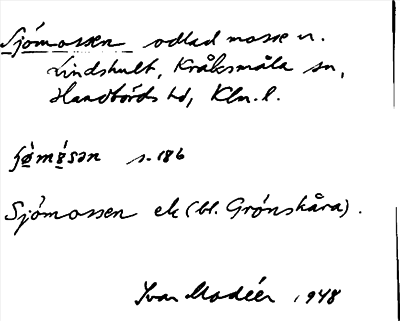 Sjömossen odlad mosse n.
Lindshult, Kråksmåla sn,
Handbörds hd, Klm. l.
s. 186
Sjömossen ek (bl. Grönskåra).
Ivar Modéer 1948